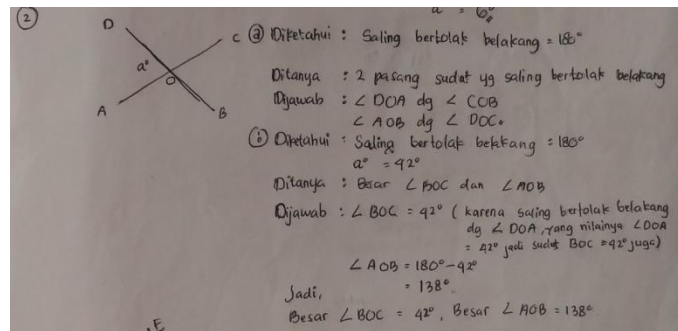 a = 6°
2
D
C
a°
O
A
B
a Diketahui : Saling bertolak belakang = 180°
Ditanya : 2 pasang sudut yg saling bertolak belakang
Dijawab : ∠ DOA dg ∠ COB
∠ AOB dg ∠ DOC.
b Diketahui : Saling bertolak belakang = 180°
a° = 42°
Ditanya : Besar ∠ BOC dan ∠ AOB
Dijawab : ∠ BOC = 42° ( karena saling bertolak belakang
dg ∠ DOA, yang nilainya ∠DOA
= 42° jadi sudut BOC = 42° juga)
∠ AOB = 180° - 42°
= 138°
Jadi,
Besar ∠ BOC = 42°, Besar ∠ AOB = 138°
E